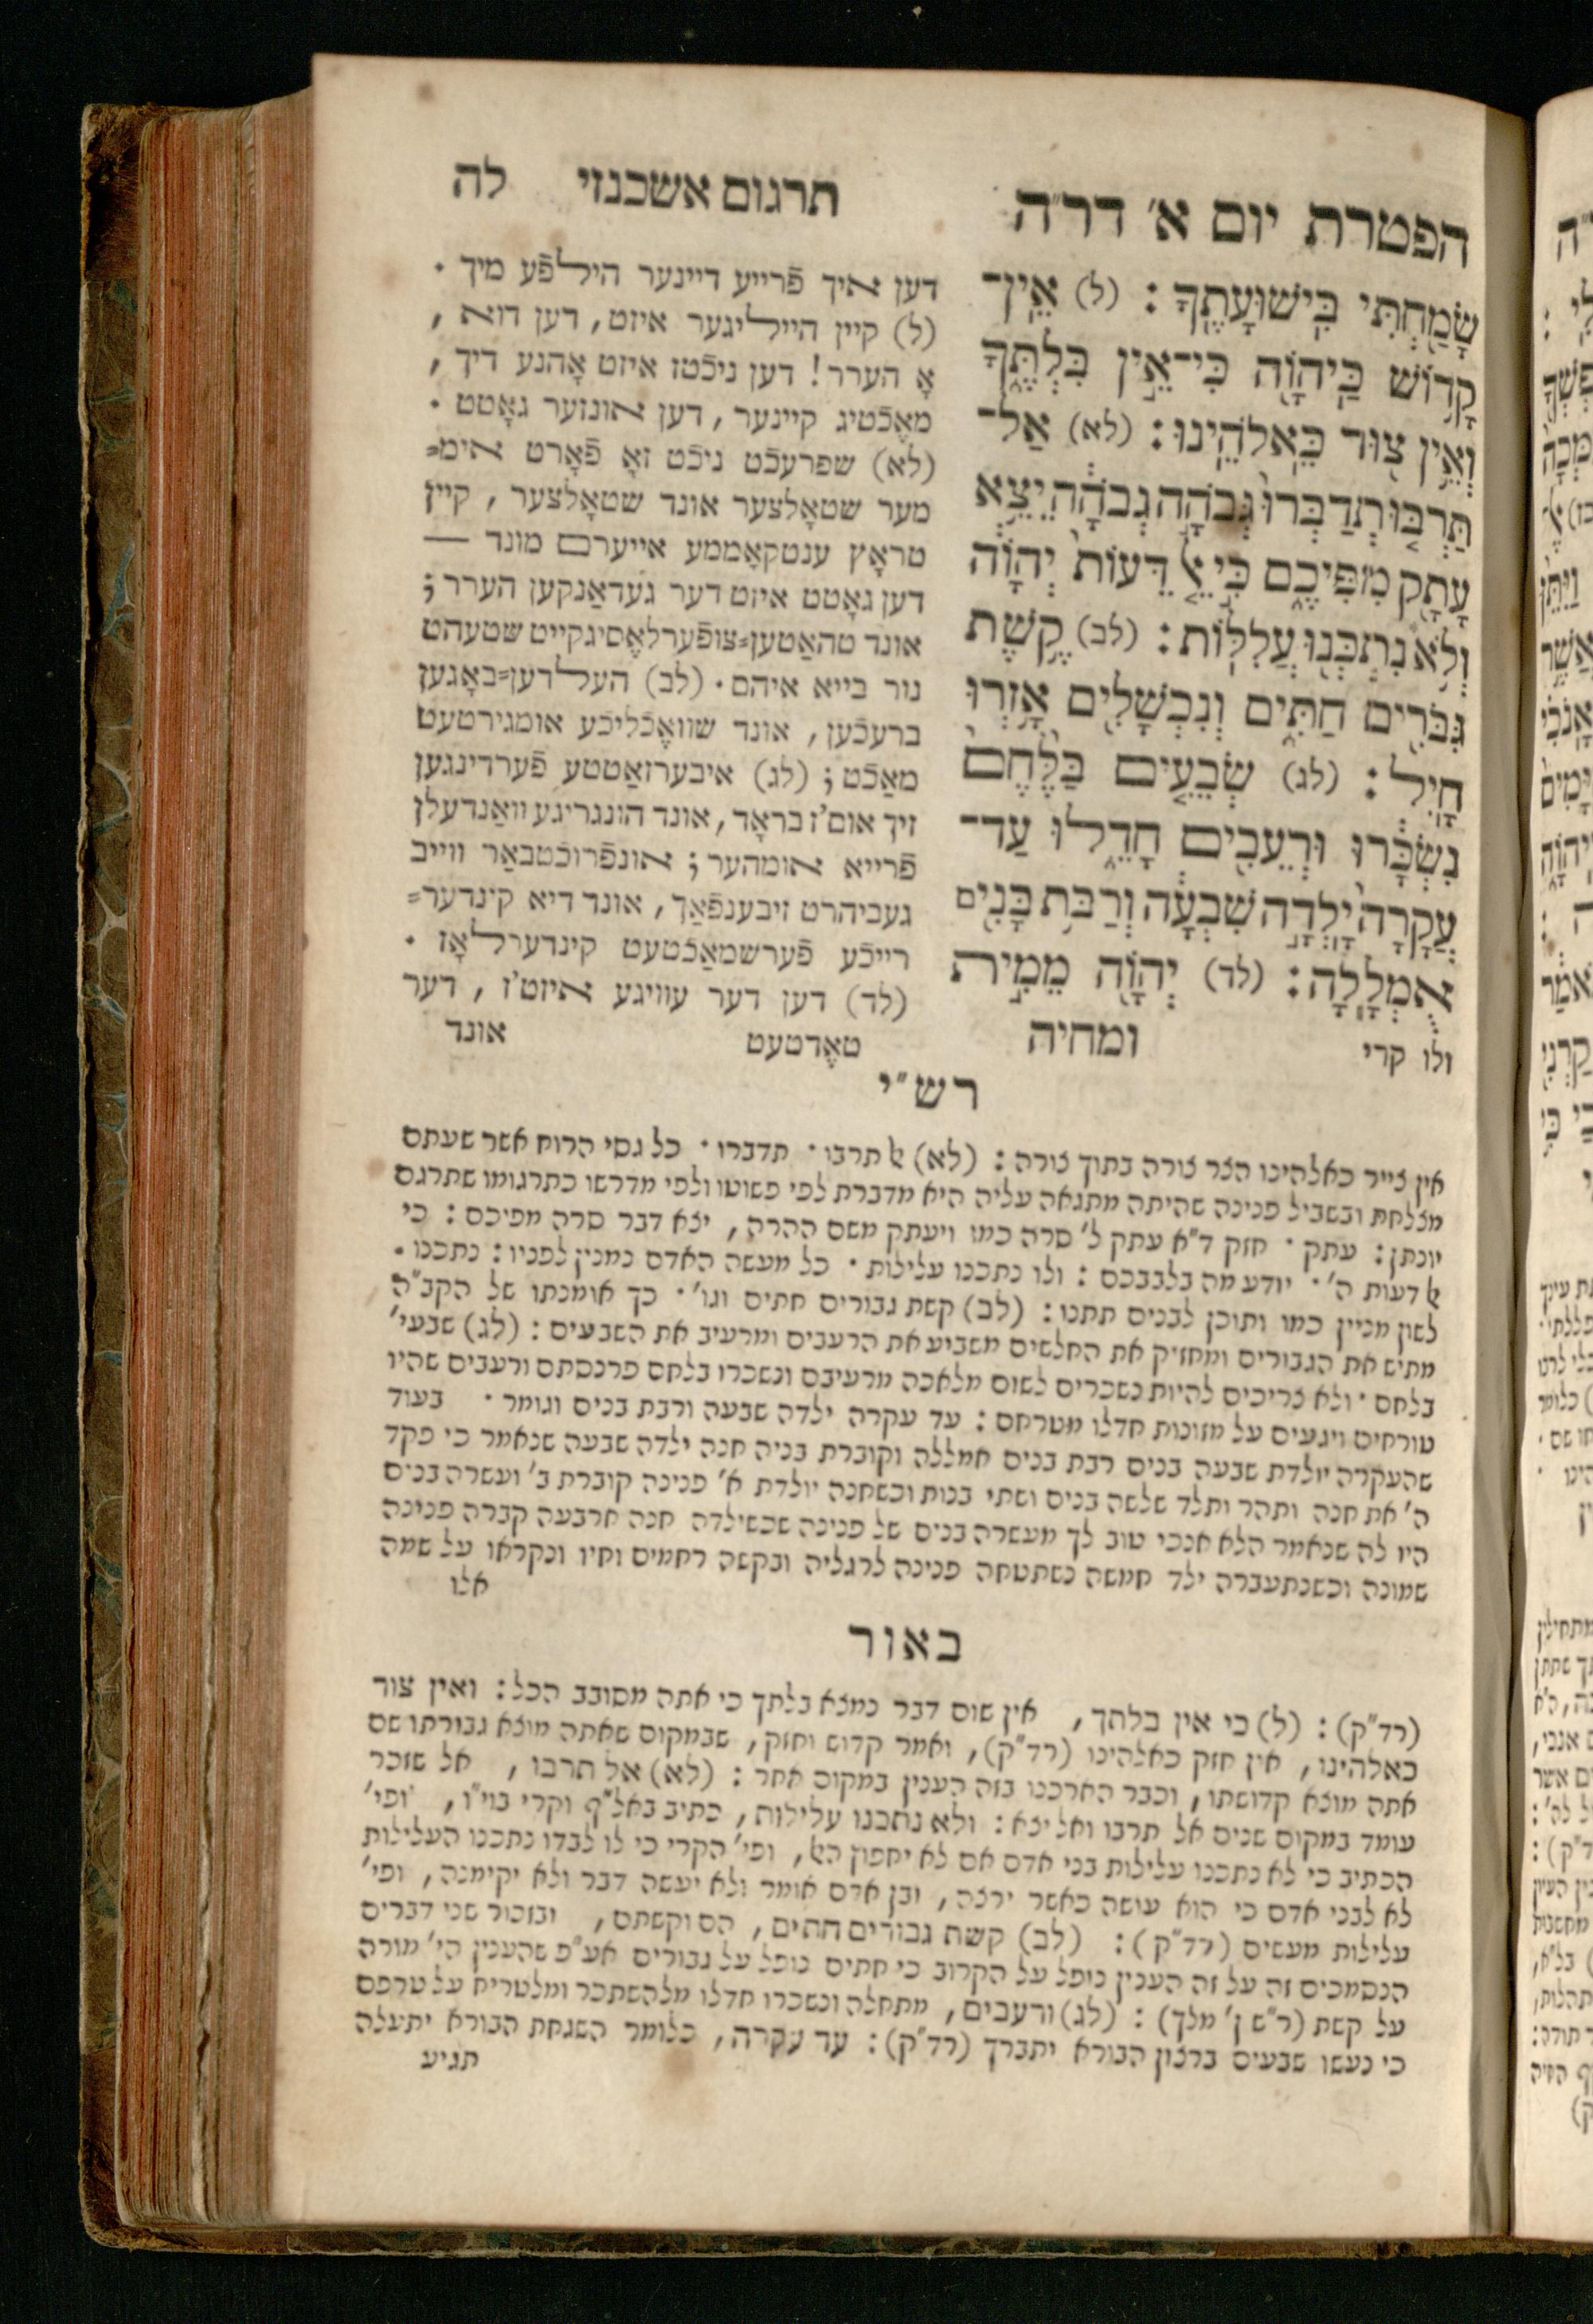 הפטרת יום א׳ דר״ה
שָׂמַ֖חְתִּי בִּישׁוּעָתֶֽךָ׃ (ל) אֵין־
קָד֥וֹשׁ כַּיהוָ֖ה כִּי־אֵ֣ין בִּלְתֶּ֑ךָ
וְאֵ֥ין צ֖וּר כֵּאלֹהֵֽינוּ׃ (לא) אַל־
תַּרְבּ֤וּ תְדַבְּרוּ֙ גְּבֹהָ֣ה גְבֹהָ֔ה יֵצֵ֥א
עָתָ֖ק מִפִּיכֶ֑ם כִּ֣י אֵ֤ל דֵּעוֹת֙ יְהוָ֔ה
וְלֹ֥א נִתְכְּנ֖וּ עֲלִלֽוֹת׃ (לב) קֶ֥שֶׁת
גִּבֹּרִ֖ים חַתִּ֑ים וְנִכְשָׁלִ֖ים אָ֥זְרוּ
חָֽיִל׃ (לג) שְׂבֵעִ֤ים בַּלֶּ֙חֶם֙
נִשְׂכָּ֔רוּ וּרְעֵבִ֖ים חָדֵ֑לּוּ עַד־
עֲקָרָה֙ יָלְדָ֣ה שִׁבְעָ֔ה וְרַבַּ֥ת בָּנִ֖ים
אֻמְלָֽלָה׃ (לד) יְהוָ֖ה מֵמִ֣ית
ולו קרי
ומחיה
תרגום אשכנזי לה
דען איך פֿרייע דיינער הילפֿע מיך.
(ל) קיין הייליגער איזט, דען דוא,
אָ הערר! דען ניכֿטז איזט אָהנע דיך,
מאֶכֿטיג קיינער, דען אונזער גאָטט.
(לא) שפרעכֿט ניכֿט זאָ פֿאָרט אימ=
מער שטאָלצער אונד שטאָלצער, קיין
טראָץ ענטקאָממע אייערם מונד —
דען גאָטט איזט דער געדאַנקען הערר;
אונד טהאַטען=צופֿערלאֶסיגקייט שטעהט
נור בייא איהם. (לב) העלדען=באָגען
ברעכֿען, אונד שוואֶכֿליכֿע אומגירטעט
מאַכֿט; (לג) איבערזאַטטע פֿערדינגען
זיך אום'ז בראָד, אונד הונגריגע וואַנדעלן
פֿרייא אומהער; אונפֿרוכֿטבאַר ווייב
געביהרט זיבענפֿאַך, אונד דיא קינדער=
רייכֿע פֿערשמאַכֿטעט קינדערלאָז.
(לד) דען דער עוויגע איזט'ז, דער
טאֶדטעט
אונד
רש״י
אין צייר כאלהינו הצר צורה בתוך צורה: (לא) אל תרבו · תדברו · כל גסי הרוח אשר שעתם
מצלחת ובשביל פנינה שהיתה מתגאה עליה היא מדברת לפי פשוטו ולפי מדרשו כתרגומו שתרגם
יונתן: עתק · חזק ד״א עתק ל׳ סרה כמו ויעתק משם ההרה, יצא דבר סרה מפיכם: כי
אל דעות ה׳ · יודע מה בלבבכם: ולו נתכנו עלילות · כל מעשה האדם נמנין לפניו: נתכנו.
לשון מניין כמו ותוכן לבנים תתנו: (לב) קשת גבורים חתים וגו׳ · כך אומנתו של הקב״ה
מתיש את הגבורים ומחזיק את החלשים משביע את הרעבים ומרעיב את השבעים: (לג) שבעי׳
בלחם · ולא צריכים להיות נשכרים לשום מלאכה מרעיבם ונשכרו בלחם פרנסתם ורעבים שהיו
טורחים ויגעים על מזונות חדלו מטרחם: עד עקרה ילדה שבעה ורבת בנים וגומר · בעוד
שהעקרה יולדת שבעה בנים רבת בנים אמללה וקוברת בניה חנה ילדה שבעה שנאמר כי פקד
ה׳ את חנה ותהר ותלד שלשה בנים ושתי בנות וכשחנה יולדת א׳ פנינה קוברת ב׳ ועשרה בנים
היו לה שנאמר הלא אנכי טוב לך מעשרה בנים של פנינה שכשילדה חנה ארבעה קברה פנינה
שמונה וכשנתעברה ילד חמשה נשתטחה פנינה לרגליה ובקשה רחמים וחיו ונקראו על שמה
אלו
באור
(רד״ק): (ל) כי אין בלתך, אין שום דבר נמצא בלתך כי אתה מסובב הכל: ואין צור
כאלהינו, אין חזק כאלהינו (רד״ק), ואמר קדוש וחזק, שבמקום שאתה מוצא גבורתו שם
אתה מוצא קדושתו, וכבר הארכנו בזה הענין במקום אחר: (לא) אל תרבו, אל שזכר
עומד במקום שנים אל תרבו ואל יצא: ולא נתכנו עלילות, כתיב באל״ף וקרי בוי״ו, ופי׳
הכתיב כי לא נתכנו עלילות בני אדם אם לא יחפוץ האל, ופי׳ הקרי כי לו לבדו נתכנו העלילות
לא לבני אדם כי הוא עושה כאשר ירצה, ובן אדם אומר ולא יעשה דבר ולא יקימנה, ופי׳
עלילות מעשים (רד״ק): (לב) קשת גבורים חתים, הם וקשתם, ובזכור שני דברים
הנסמכים זה על זה הענין נופל על הקרוב כי חתים נופל על גבורים אע״פ שהענין הי׳ מורה
על קשת (ר״ש ן׳ מלך): (לג) ורעבים, מתחלה ונשכרו חדלו מלהשתכר ומלטריח על טרפם
כי נעשו שבעים ברצון הבורא יתברך (רד״ק): עד עקרה, כלומר השגחת הבורא יתעלה
תגיע